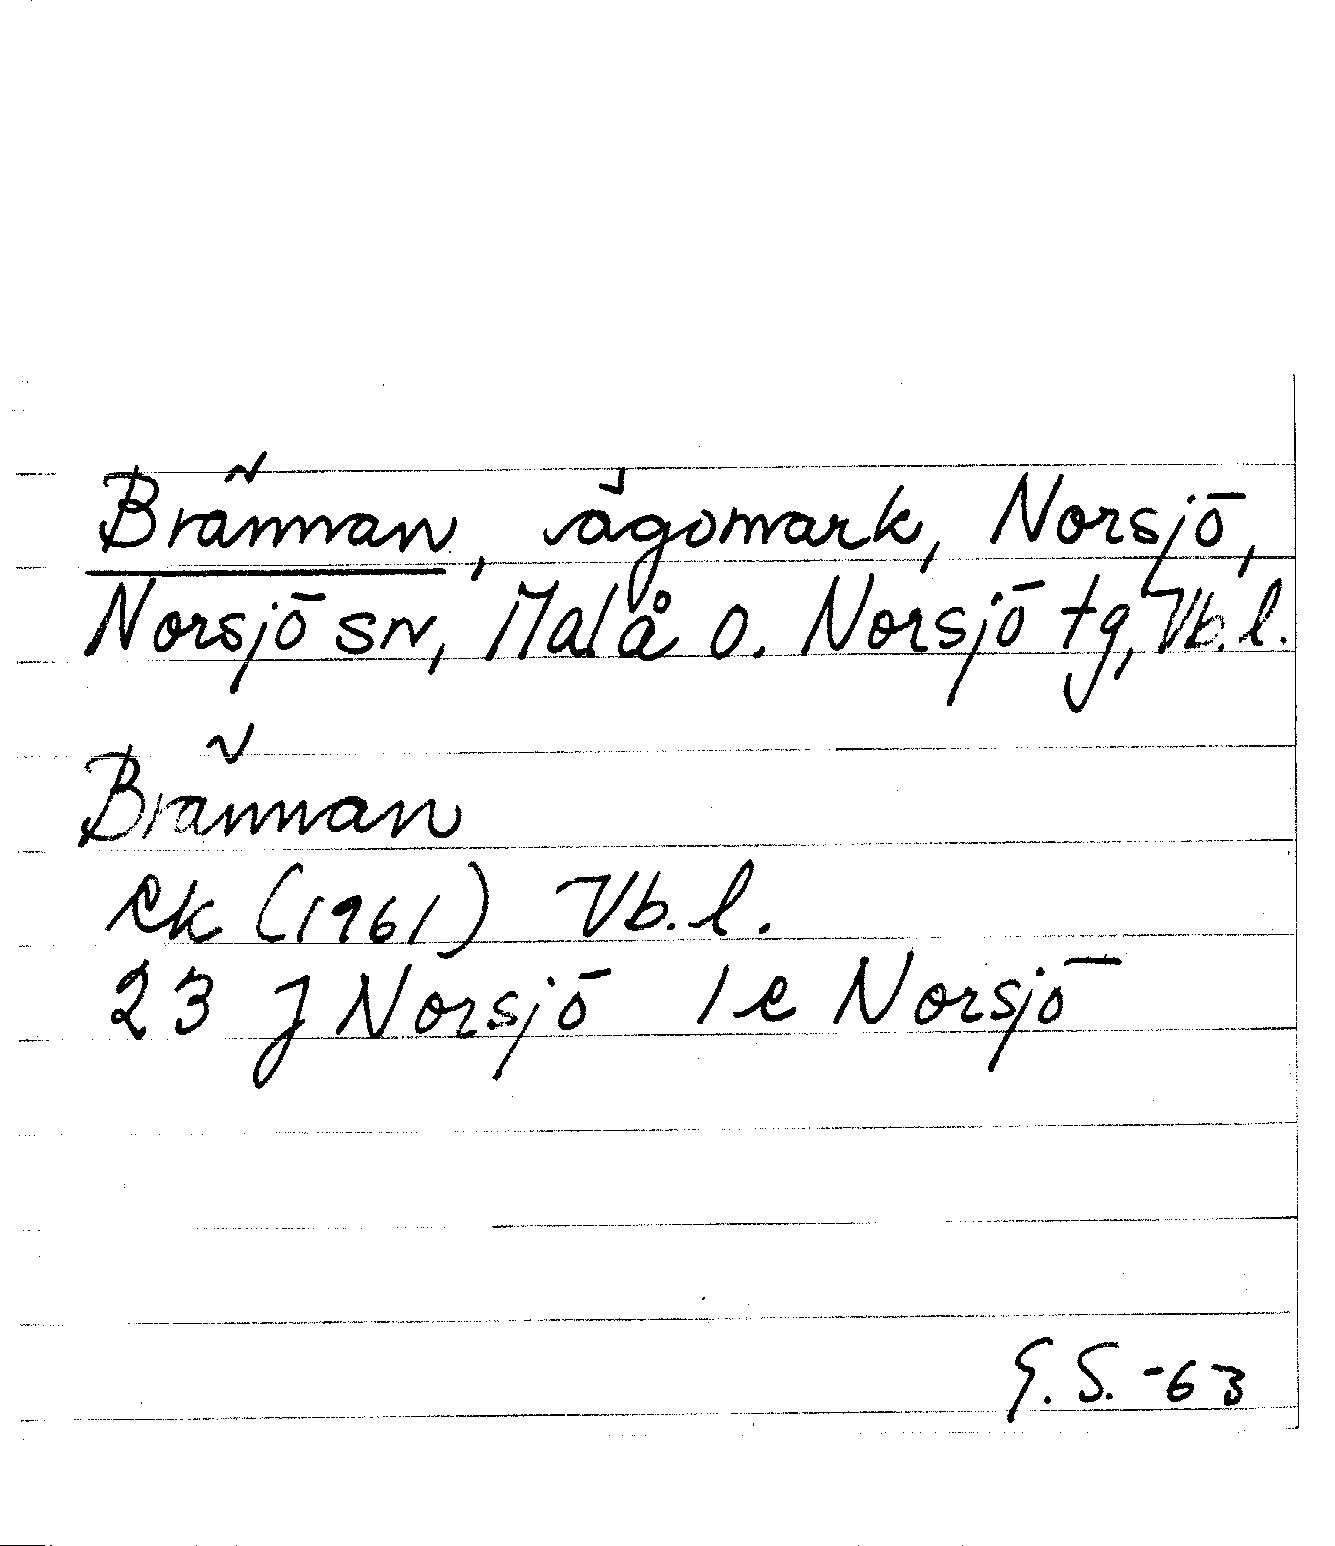 Brännan, ägomark, Norsjö,
Norsjö sn, Malå o. Norsjö tg, Vb.l.
Brännan
ek (1961) Vb.l.
23 J Norsjö 1e Norsjö
G.S. -63